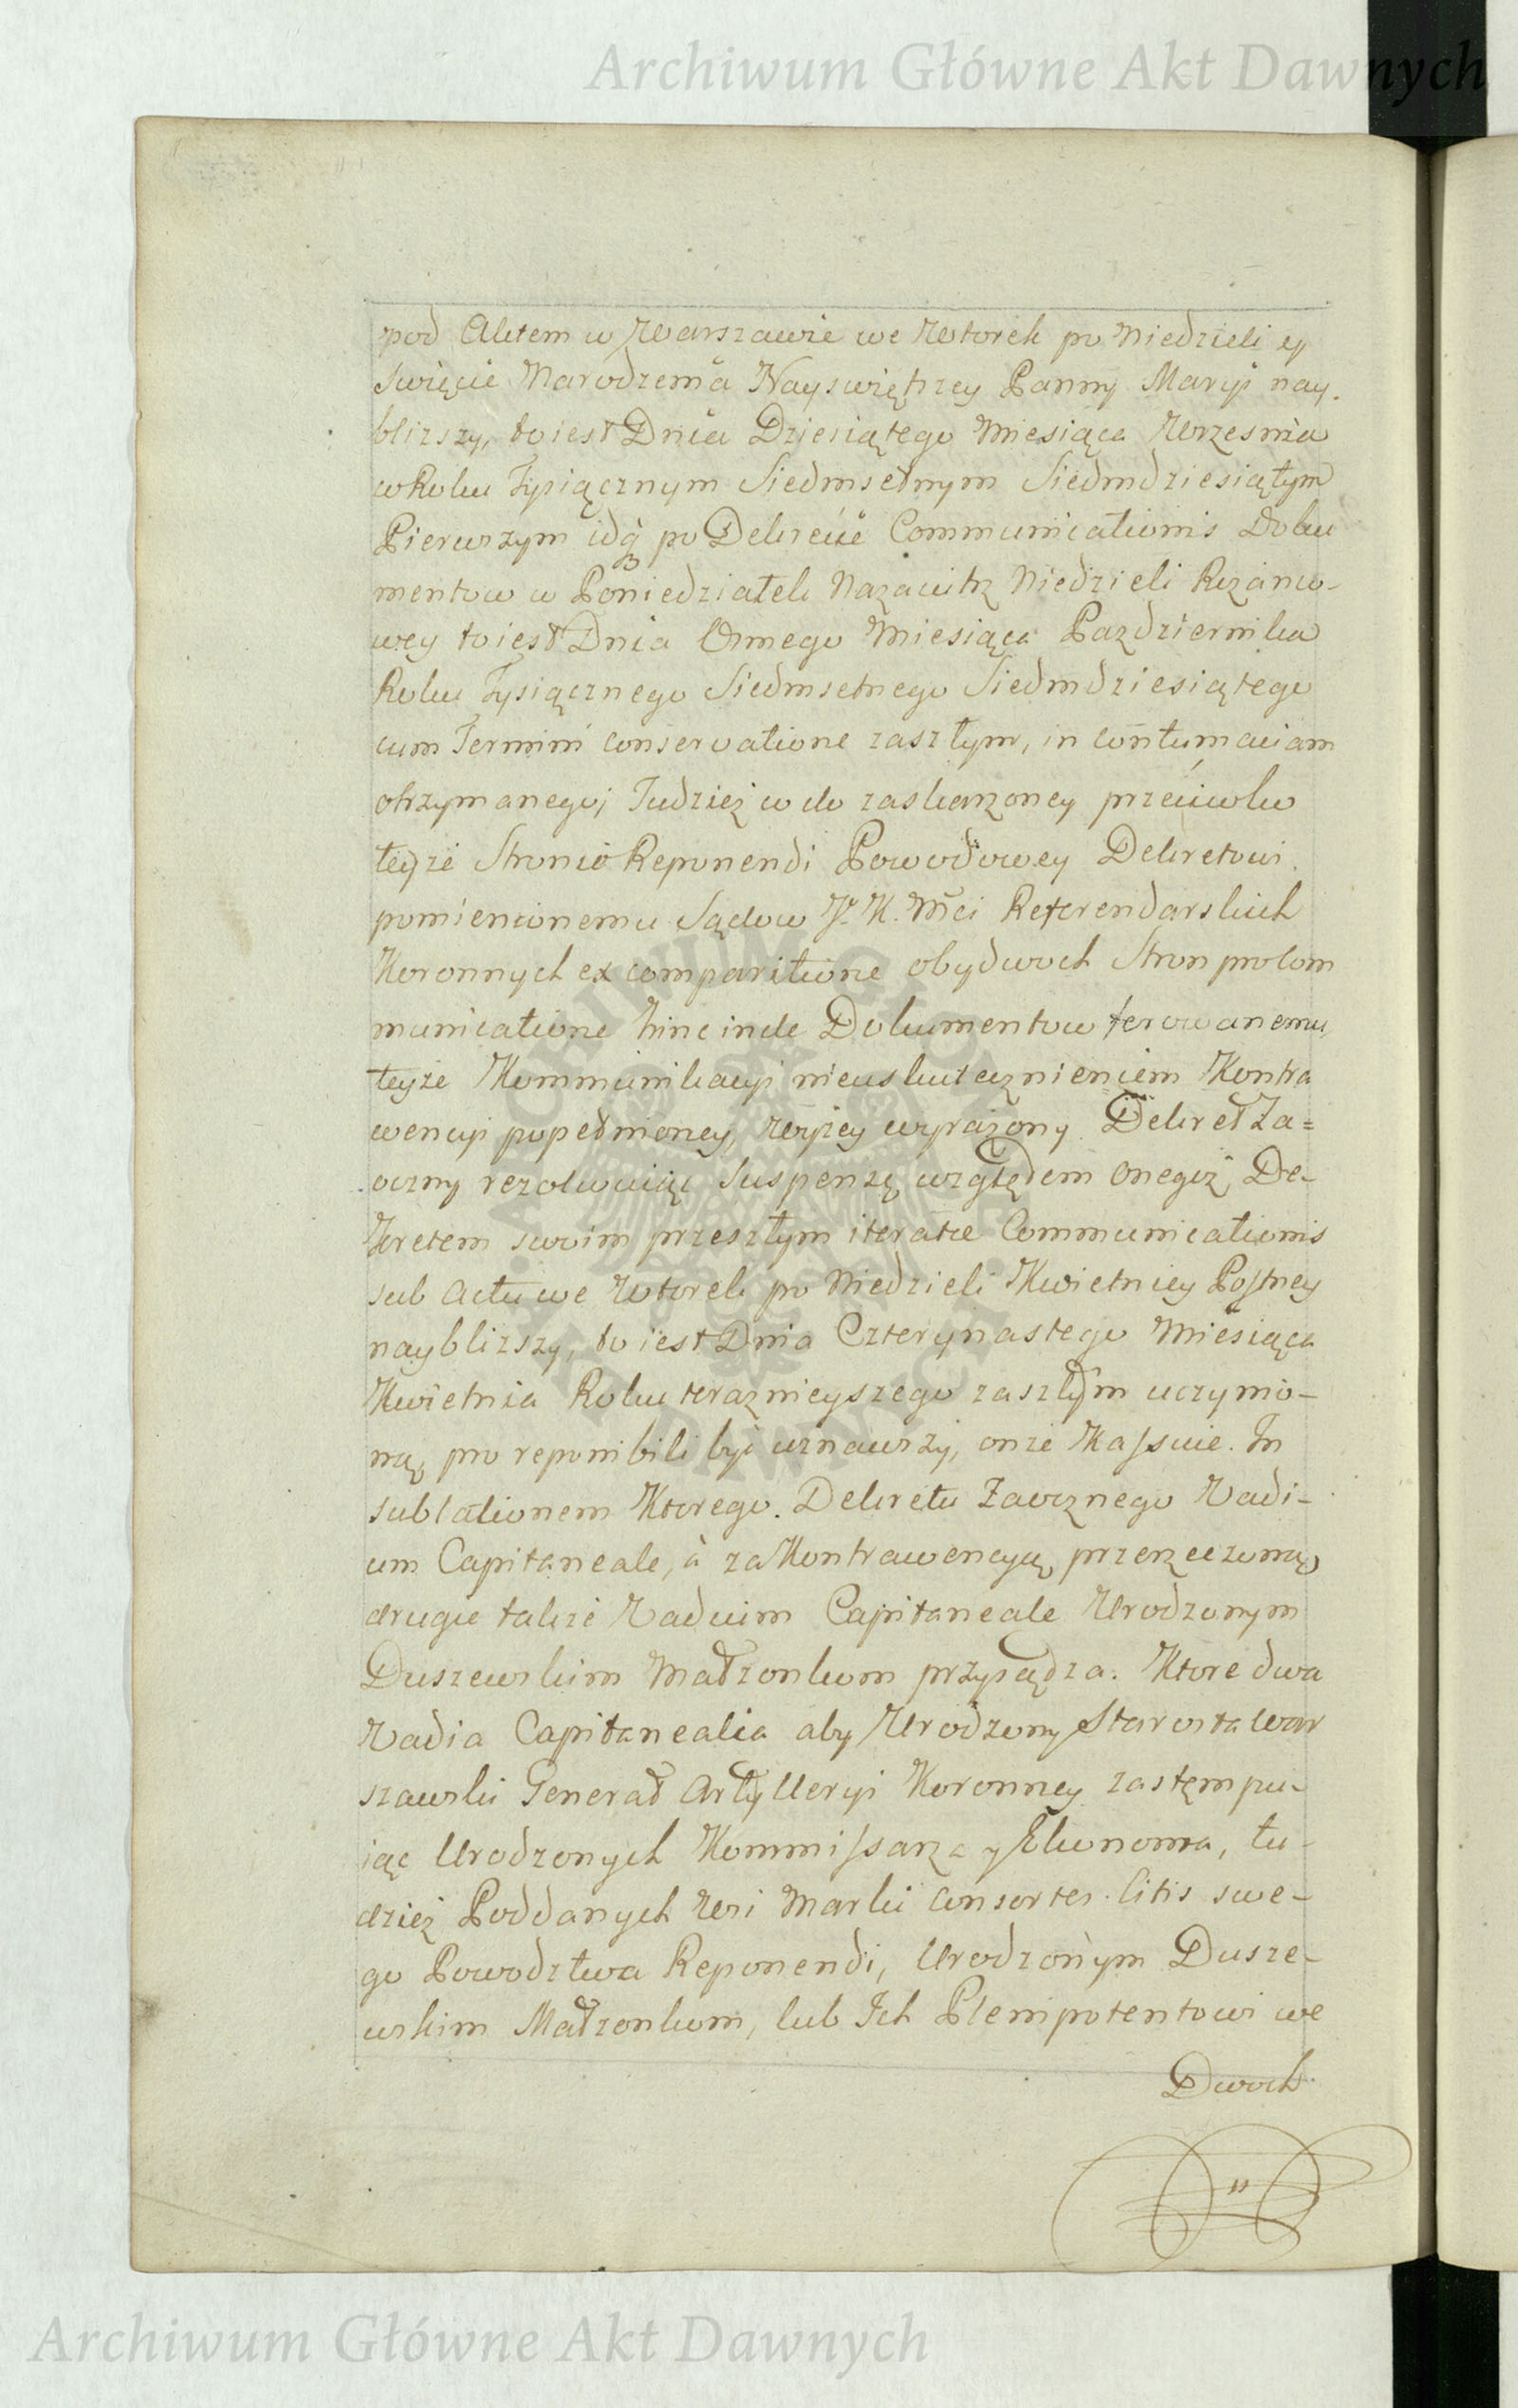 Archiwum Główne Akt Dawnych
pod Aktem w Warszawie we Wtorek po Niedzieli y
Swięcie Narodzenia Nayswiętszey Panny Maryi nay-
blizszy, to iest Dnia Dziesiątego Miesiąca Wrzesnia
w Roku Tysiącznym Siedmsetnym Siedmdziesiątym
Pierwszym idą po Dekrecie Communicationis Doku
mentow w Poniedziałek Nazaiutrz Niedzieli Rożanco-
wey to iest Dnia Osmego Miesiąca Pazdziernika
Roku Tysiącznego Siedmsetnego Siedmdziesiątego
cum Termini conservatione zaszłym, in contumaciam
otrzymanego; Tudzież w do zaskarzoney przeciwko
teyże Stronie Reponendi Powodowey Dekretowi
pomienionemu Sądow J. K. Mci Referendarskich
Koronnych ex comparitione obydwoch Stron pro Com
municatione hinc inde Dokumentow ferowanemu,
teyże Kommunikacyi nieuskutecznieniem Kontra
wencyi popełnioney, wyżey wyrażony Dekret Za=
oczny rezolwuiąc Suspensę względem onegoż De-
kretem swoim przeszłym iteratae Communicationis
sub Actu we Wtorek po Niedzieli Kwietniey Postney
nayblizszy, to iest Dnia Czterynastego Miesiąca
Kwietnia Roku teraznieyszego zaszłym uczynio-
ną, pro reponibili być uznawszy, onże Kassuie. In
sublationem Ktorego Dekretu Zaocznego Vadi-
um Capitaneale, à za Kontrawencyą przerzeczoną
drugie także Vadium Capitaneale Urodzonym
Duszewskim Małżonkom przysądza. Ktore dwa
Vadia Capitanealia aby Urodzony Starosta War
szawski Generał Artylleryi Koronney zastępu-
iąc Urodzonych Kommissarza y Ekonoma, tu-
dzież Poddanych Wsi Marki Consortes Litis swe-
go Powodztwa Reponendi, Urodzonym Dusze-
wskim Małżonkom, lub Ich Plenipotentowi we
Dwoch
Archiwum Główne Akt Dawnych